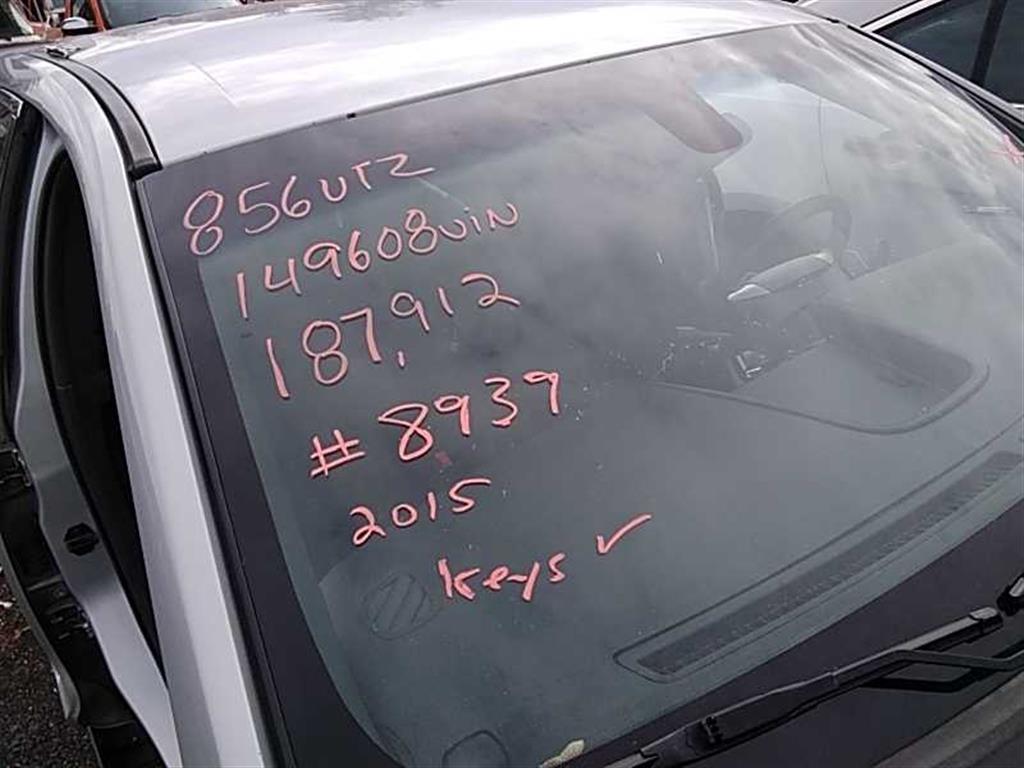 856UTZ
149608VIN
187,912
#8939
2015
Keys ✓